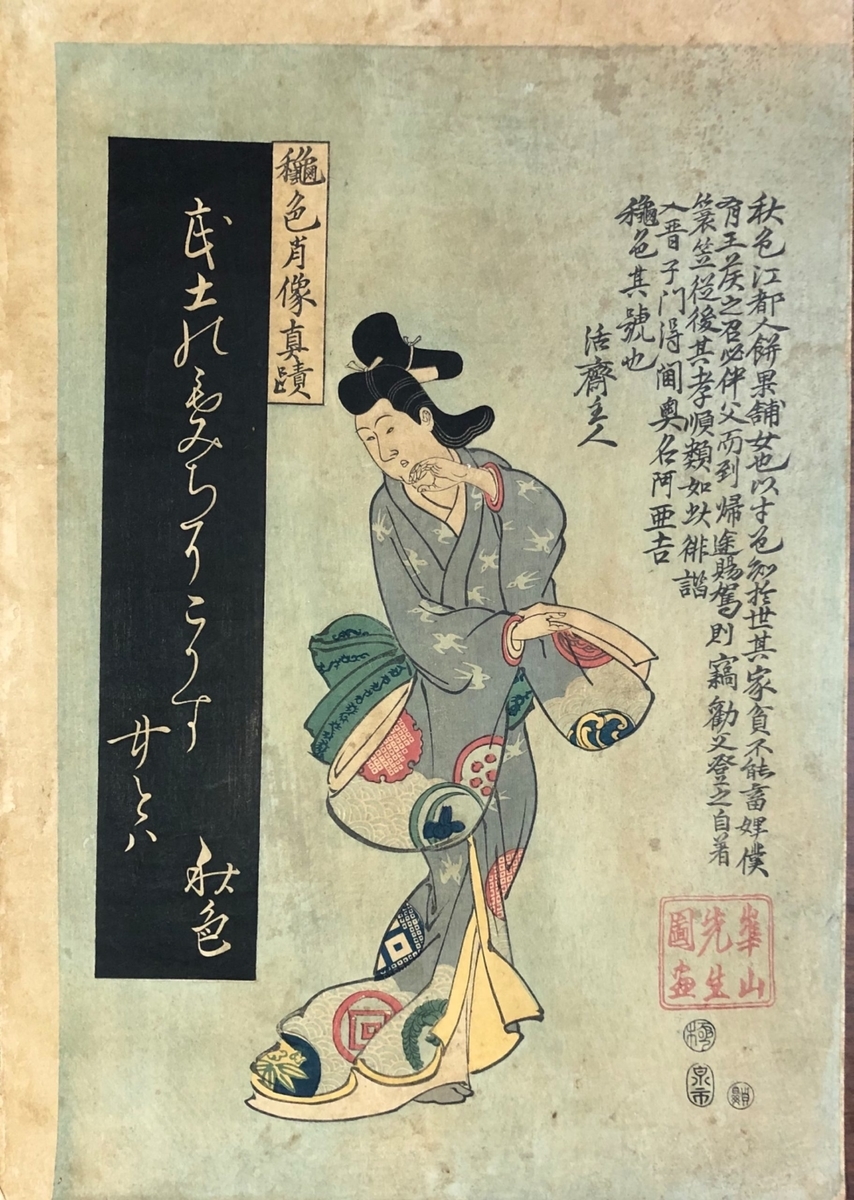 秋色江都人餅果舗女也以才色知於世其家貧不能畜婢僕
有王侯之召必伴父而到帰途賜駕則竊勧父登之自著
簑笠従後其孝順類如此俳諧
入晋子門得閫奥名阿亜吉
龝色其號也
活齋主人
龝色肖像真蹟
武士の
みちりこりす
秋色
崋山
先生
圖画
極
泉市